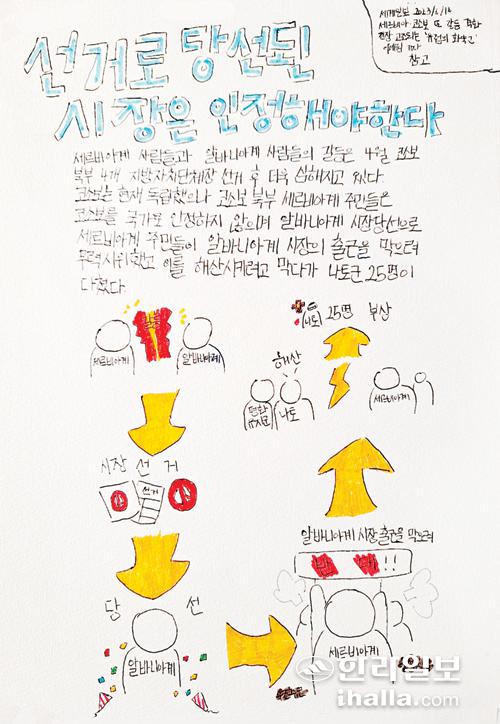 세계일보 2023/6/12
세르비아 코소보 또 갈등 격화
참고
선거로 당선된
시장은 인정해야한다
세르비아계 사람들과 알바니아계 사람들의 갈등은 4월 코소보
북부 4개 지방자치단체장 선거 후 더욱 심해지고 있다
코소보는 현재 독립했으나 코소보 북부 세르비아계 주민들은
코소보를 국가로 인정하지 않으며 알바니아계 시장당선으로
세르비아계 주민들이 알바니아계 시장의 출근을 막으려
무력시위했고 이를 해산시키려고 막다가 나토군 25명이
다쳤다
갈등
세르비아계
알바니아계
(나토) 25명 부상
해산
평화유지군
나토
세르비아계
시장 선거
선거
알바니아계 시장 출근을 막으려
반대!!
당선
알바니아계
세르비아계
한라일보
ihalla.com